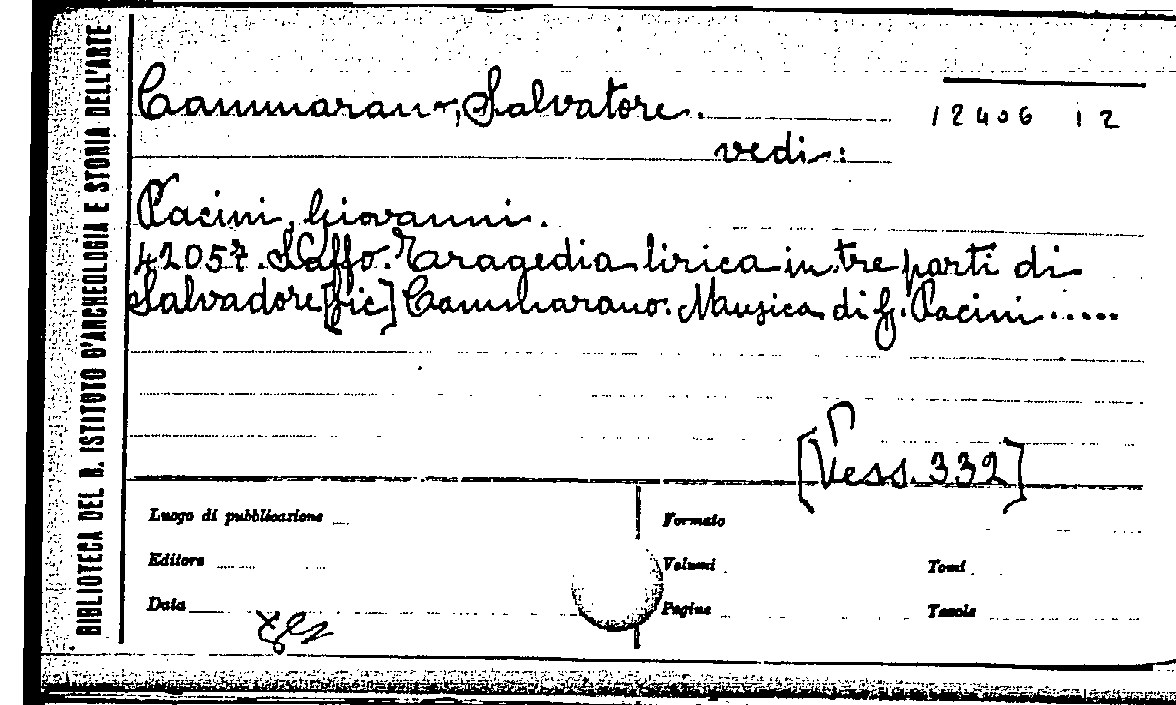 BIBLIOTECA DEL R. ISTITUTO D'ARCHEOLOGIA E STORIA DELL'ARTE
Cammarano, Salvatore.
12406 12
vedi:
Pacini, Giovanni.
42057. Saffo. Tragedia lirica in tre parti di
Salvadore [sic] Cammarano. Musica di G. Pacini.....
[Vess. 332]
Luogo di pubblicazione
Formato
Editore
Volumi
Tomi
Data
Pagine
Tavole